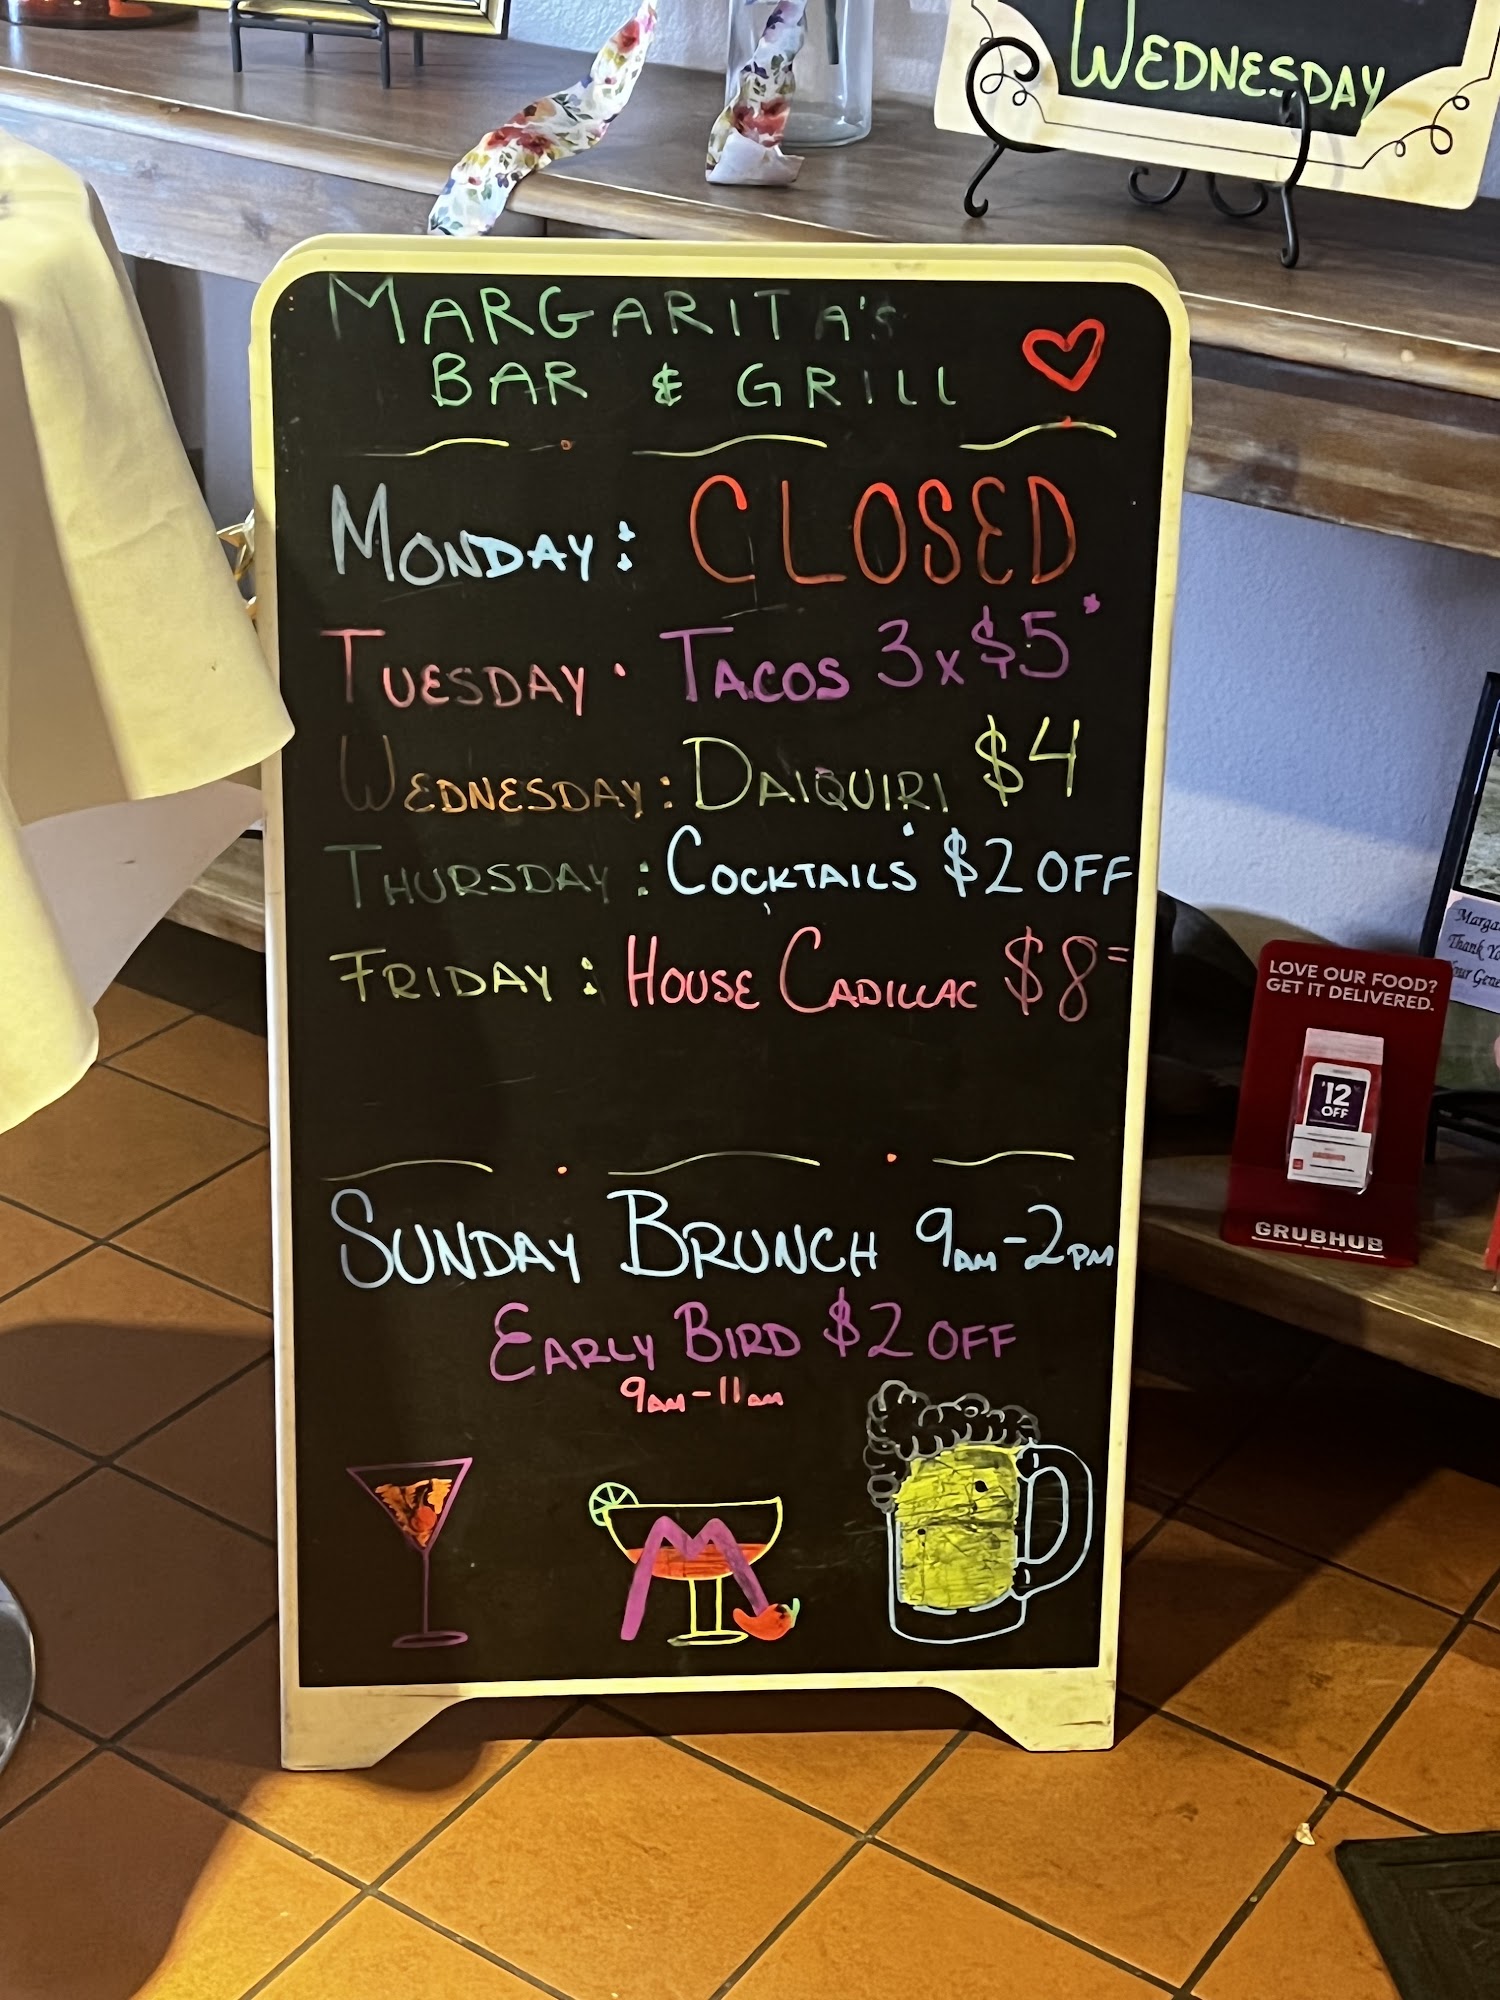 WEDNESDAY
MARGARITA'S
BAR & GRILL
MONDAY: CLOSED
TUESDAY· TACOS 3x$5*
WEDNESDAY: DAIQUIRI $4
THURSDAY: COCKTAILS $2 OFF
FRIDAY: HOUSE CADILLAC $8=
SUNDAY BRUNCH 9AM-2PM
EARLY BIRD $2 OFF
9AM-11AM
M
LOVE OUR FOOD?
GET IT DELIVERED.
$12
OFF
GRUBHUB
Thank